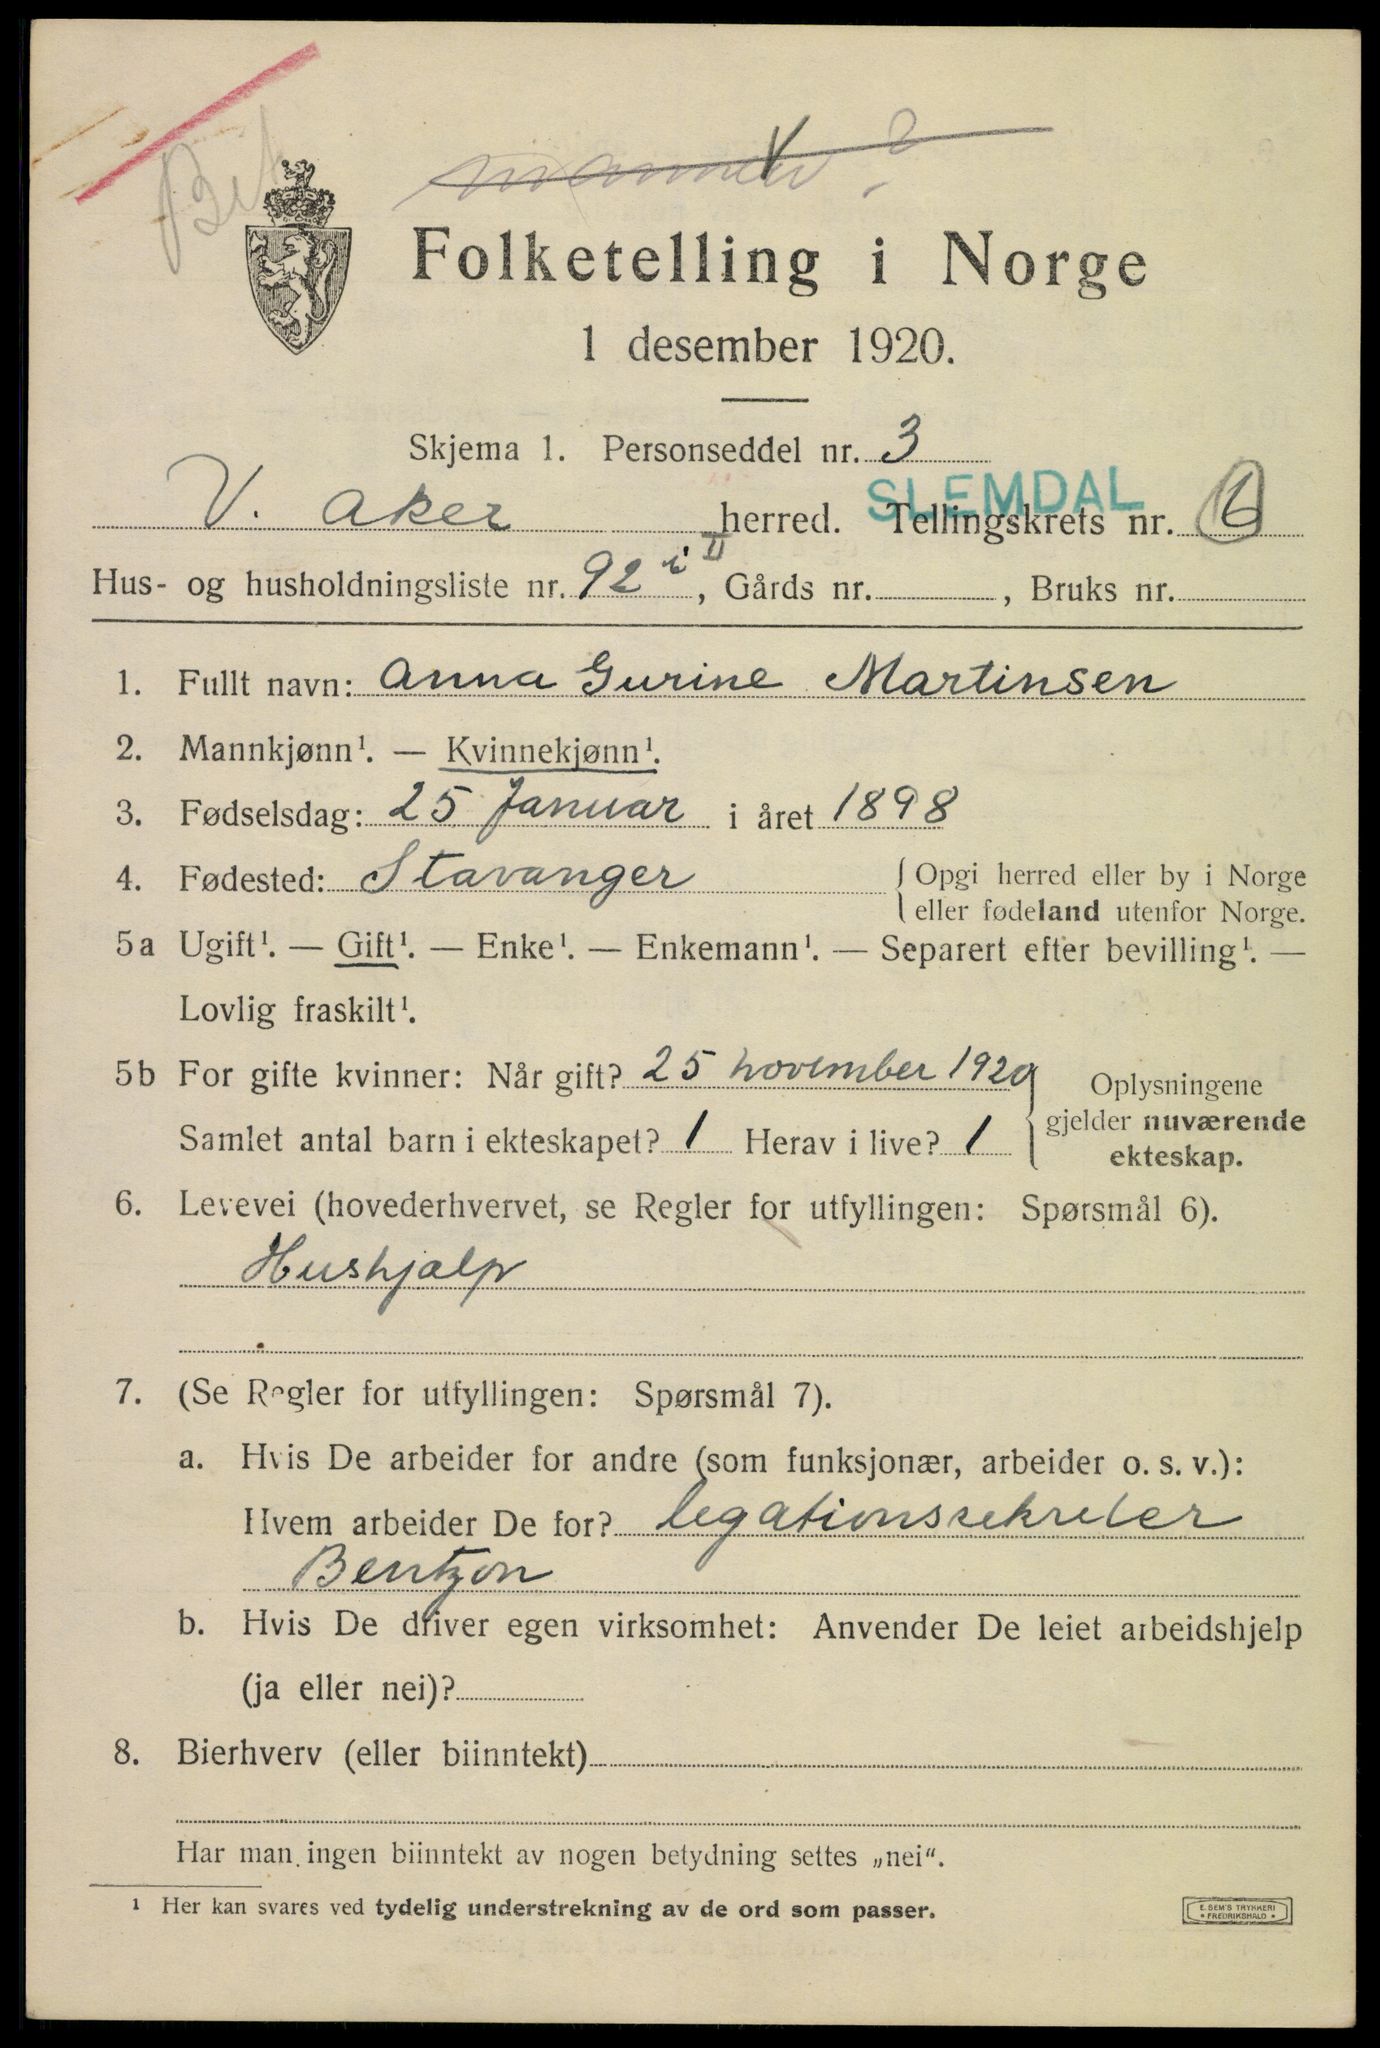 Folketelling i Norge
1 desember 1920.
Skjema 1. Personseddel nr. 3
SLEMDAL
V. Aker herred. Tellingskrets nr. 6
Hus- og husholdningsliste nr. 92 i II, Gårds nr. , Bruks nr.
1. Fullt navn: Anna Gurine Martinsen
2. Mannkjønn¹. — Kvinnekjønn¹.
3. Fødselsdag: 25 Januar i året 1898
4. Fødested: Stavanger { Opgi herred eller by i Norge
eller fødeland utenfor Norge.
5a Ugift¹. — Gift¹. — Enke¹. — Enkemann¹. — Separert efter bevilling¹. —
Lovlig fraskilt¹.
5b For gifte kvinner: Når gift? 25 november 1920 } Oplysningene
gjelder nuværende
Samlet antal barn i ekteskapet? 1 Herav i live? 1
ekteskap.
6. Levevei (hovederhvervet, se Regler for utfyllingen: Spørsmål 6).
Hushjalp
7. (Se Regler for utfyllingen: Spørsmål 7).
a. Hvis De arbeider for andre (som funksjonær, arbeider o. s. v.):
Hvem arbeider De for? legationssekreter
Bentzon
b. Hvis De driver egen virksomhet: Anvender De leiet arbeidshjelp
(ja eller nei)?
8. Bierhverv (eller biinntekt)
Har man ingen biinntekt av nogen betydning settes „nei“.
¹ Her kan svares ved tydelig understrekning av de ord som passer.
E. SEM'S TRYKKERI
• FREDRIKSHALD •